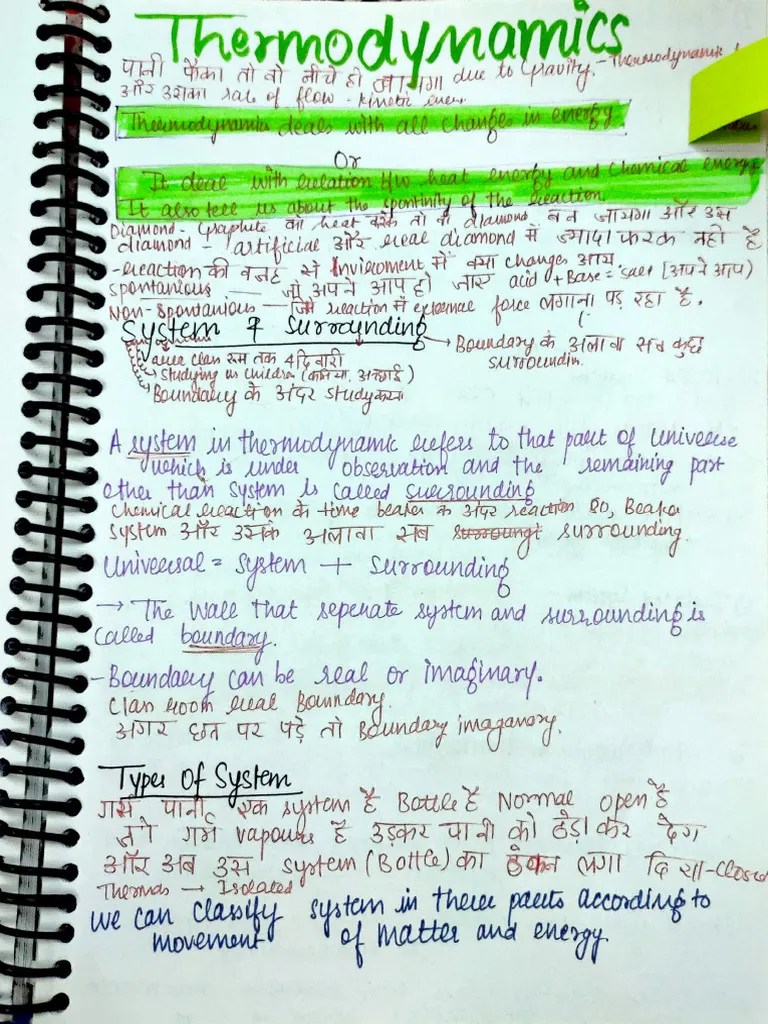 Thermodynamics
पानी फेंका तो वो नीचे ही जायगा due to Gravity. - Thermodynamic
और उसका rate of flow - kinetic ener
Thermodynamics deals with all changes in energy
Or
It deal with relation b/w heat energy and chemical energy
It also tell us about the spontinity of the Reaction
Diamond - Graphite को heat करके तो वो diamond बन जायगा और उस
diamond - artificial और real diamond में ज्यादा फरक नही है
- reaction की वजह से Inviroment में क्या changes आय
spontanious — जो अपने आप हो जाए acid + Base = salt [अपने आप)
Non-spontanious — जिस reaction में external force लगाना पड़ रहा है.
System & Surrounding → Boundary के अलावा सब कुछ
surroundin.
area class रूम तक 4 दिवारी
studying on children
Boundary के अंदर study करना
A system in thermodynamic refers to that part of Universe
which is under observation and the remaining part
other than system is called surrounding
Chemical reaction के time beaker के अंदर reaction so, Beaker
system और उसके अलावा सब surroungi surrounding.
Universal = System + Surrounding
→ The Wall that seperate system and surrounding is
called boundary.
- Boundary can be real or imaginary.
Class room real Bounndary.
अगर छत पर पड़े तो Boundary imaganary.
Types Of System
गर्म पानी एक system है Bottle है Normal open है
तो गर्म vapours है उड़कर पानी को ठंडा कर देग
और अब उस system (Bottle) का ढक्कन लगा दिया - closed
Thermos → Isolated
We can classify system in these parts according to
movement of matter and energy.